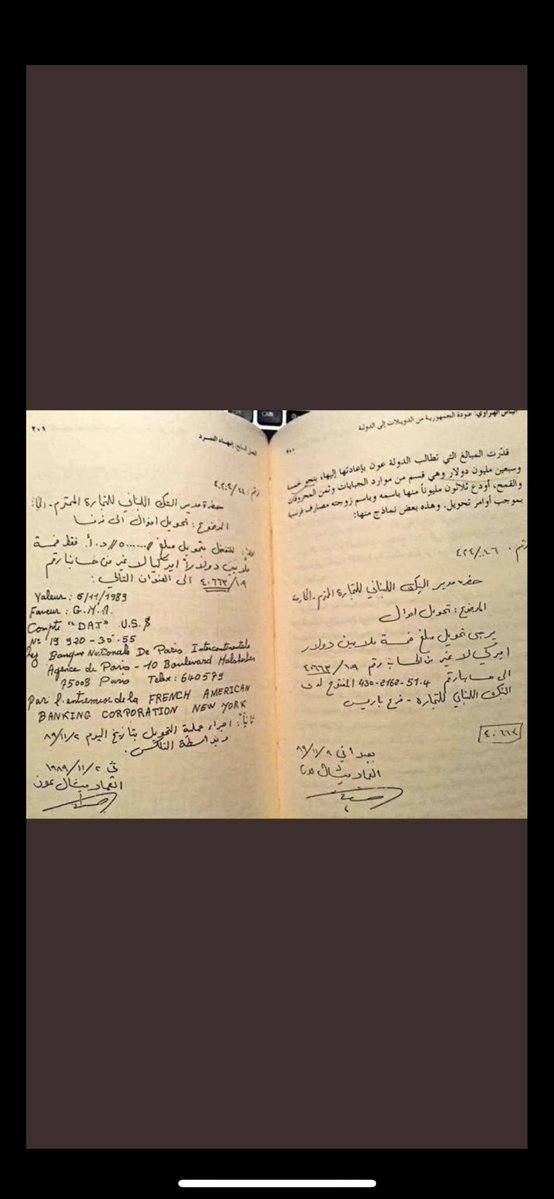 الياس الهراوي: عودة الجمهورية من الدويلات إلى الدولة
٢٠٠
قدّرت المبالغ التي تطالب الدولة عون بإعادتها إليها، بنحو خمسة
وسبعين مليون دولار وهي قسم من موارد الجبايات وثمن المحروقات
والقمح، أودع ثلاثون مليوناً منها باسمه وباسم زوجته مصارف فرنسية
بموجب أوامر تحويل. وهذه بعض نماذج منها:
رقم
حضرة مدير البنك اللبناني للتجارة المحترم -
الموضوع: تحويل اموال
يرجى تحويل مبلغ خمسة ملايين دولار
اميركي لا غير من الحساب رقم ٢٠٦٦٣/١٩
الى حسابنا رقم 430-2162-51.4 المفتوح لدى
البنك اللبناني للتجارة - فرع باريس
٢٠٦٦٣
بعبدا في ٨٩/١١/٢
العماد ميشال عون
٢٠١
رقم
حضرة مدير البنك اللبناني للتجارة المحترم -
الموضوع: تحويل اموال الى فرنسا
تحويل مبلغ د.أ. فقط خمسة
ملايين دولاراً اميركياً لا غير من حسابنا رقم
٢٠٦٦٣/١٩ الى العنوان التالي:
Valeur: 6/11/1989
Faveur: G.M.A.
Compte "DAT" U.S.$
N° 19 920-30.55
Banque Nationale De Paris Intercontinentale
Agence de Paris - 10 Boulevard Malesherbes
75008 Paris Telex: 640579
Par l'entremise de la FRENCH AMERICAN
BANKING CORPORATION NEW YORK
ثانياً: اجراء عملية التحويل بتاريخ اليوم ٨٩/١١/٢
وبواسطة التلكس.
في ١٩٨٩/١١/٢
العماد ميشال عون